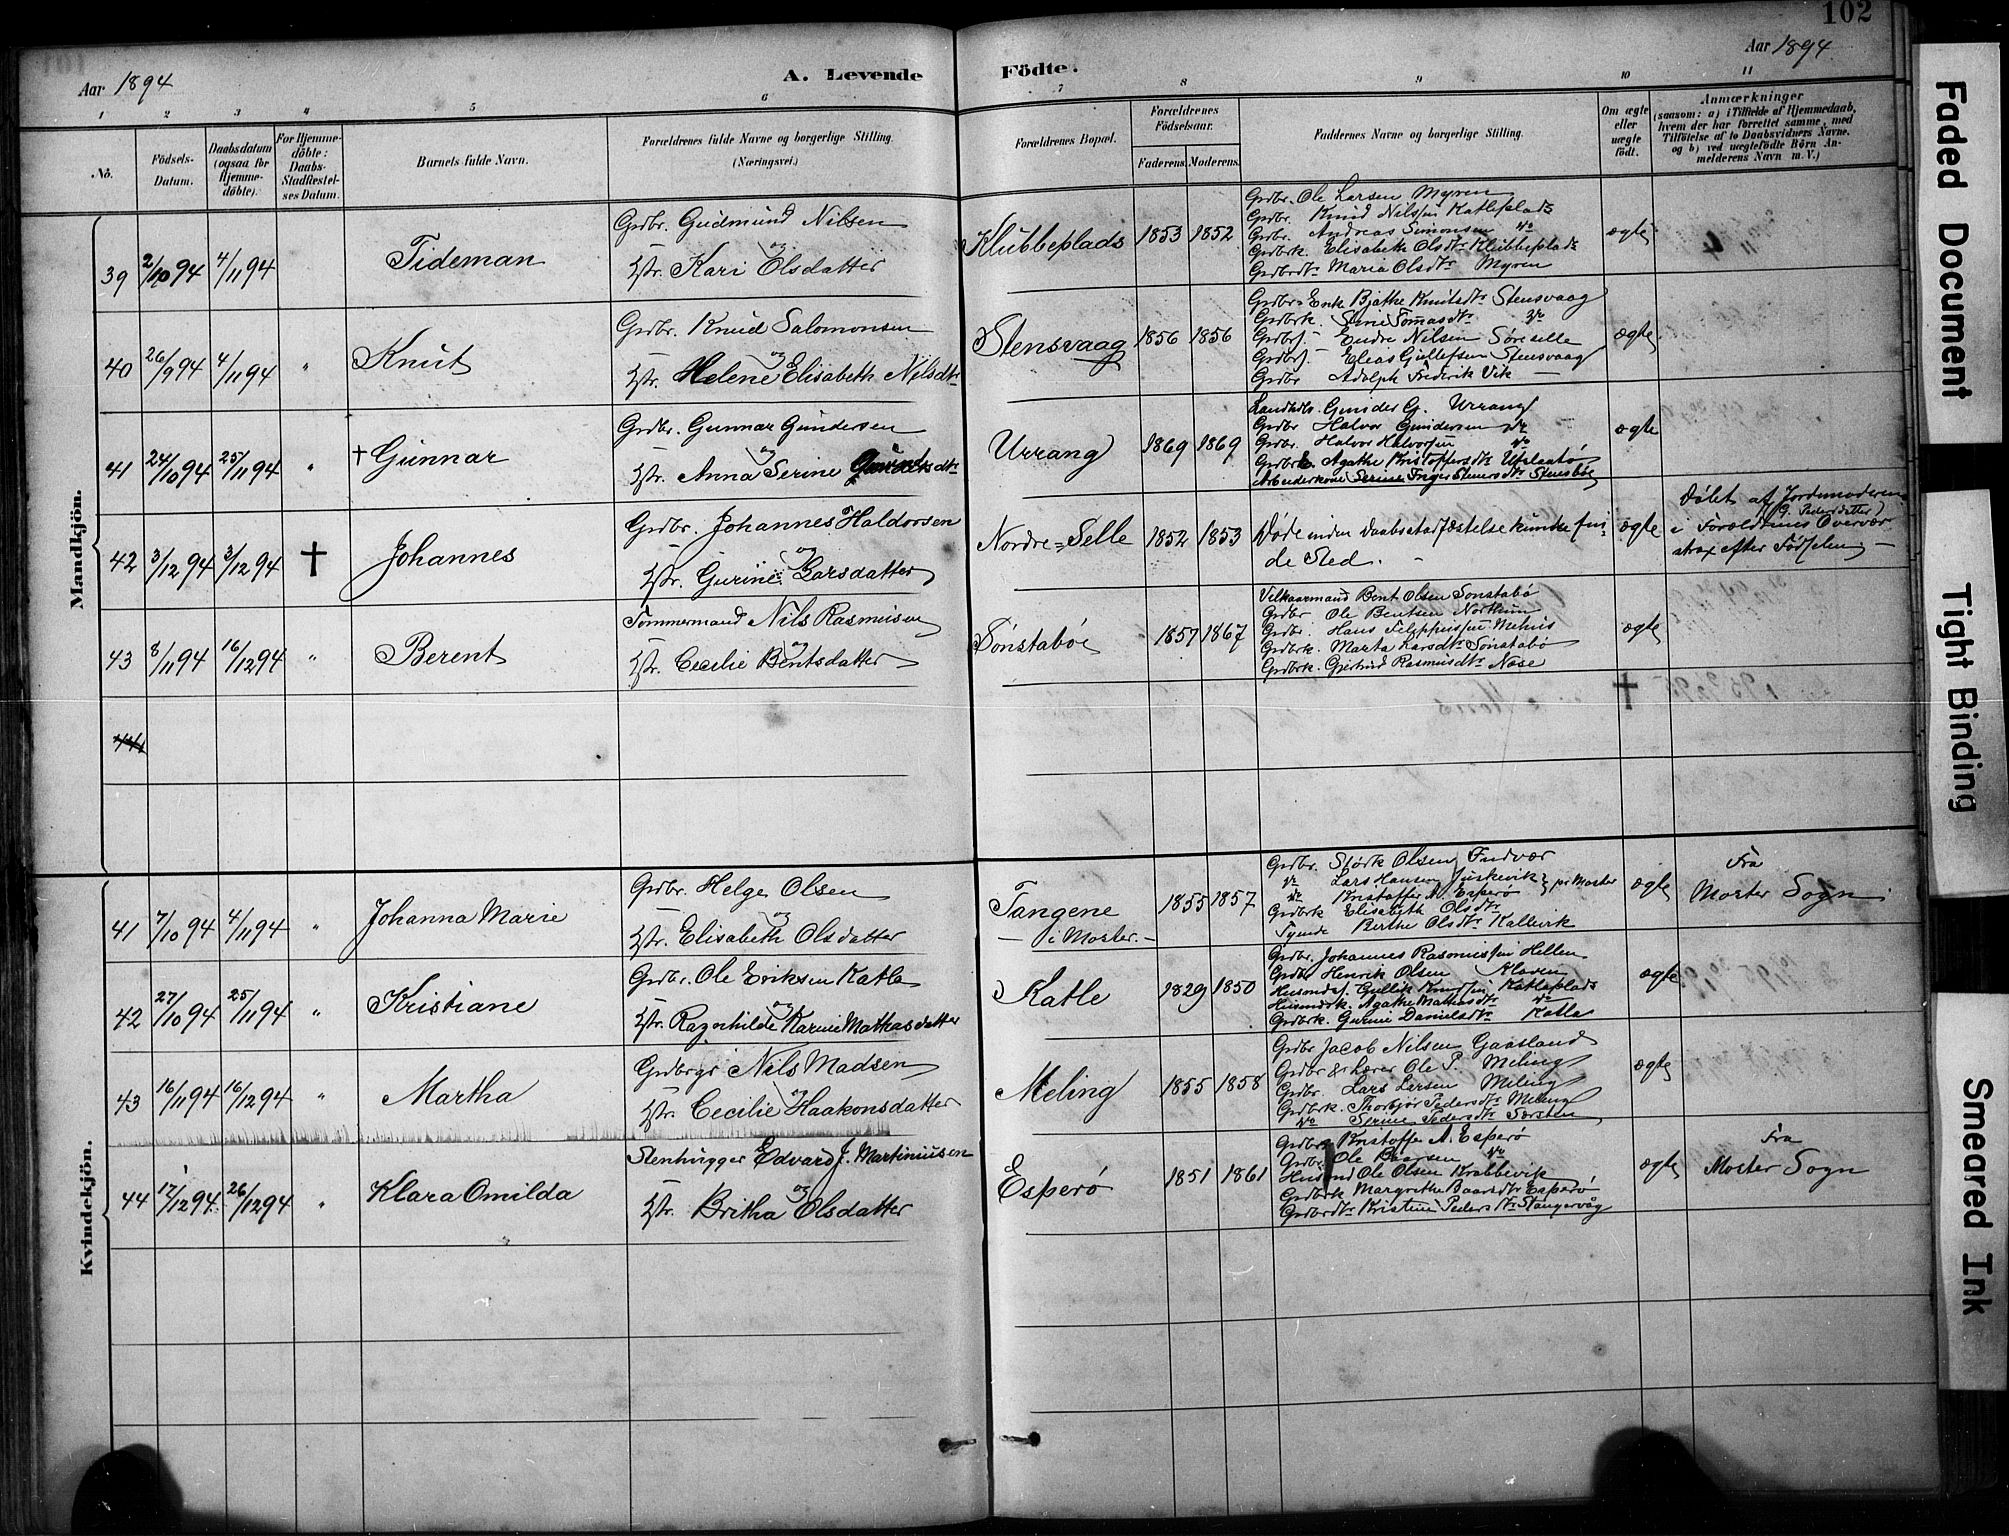 102
Aar 1894
A. Levende
Födte.
Aar 1894
1 2 3 4 5 6 7 8 9 10 11
No.
Födsels-
Datum.
Daabsdatum
(ogsaa for
Hjemme-
döbte).
For Hjemme-
döbte:
Daabs-
Stadfæstel-
ses Datum.
Barnets fulde Navn.
Forældrenes fulde Navne og borgerlige Stilling.
(Næringsvei.)
Forældrenes Bopæl.
Forældrenes
Födselsaar.
Faderens. Moderens.
Faddernes Navne og borgerlige Stilling.
Om ægte
eller
uægte
födt.
Anmærkninger
(saasom: a) i Tilfælde af Hjemmedaab,
hvem der har forrettet samme, med
Tilföielse af to Daabsvidners Navne.
og b) ved uægtefödte Börn An-
melderens Navn m. V.)
Mandkjön.
39 2/10 94 4/11 94
Tideman
Grdbr. Gudmund Nilsen
og
Hstr. Kari Olsdatter
Klubbeplads 1853 1852
Grdbr. Ole Larsen Myren
Grdbr. Knud Nilssen Katleplads
Grdbr. Andreas Simonsen do
Grdbrk. Elisabeth Olsdtr Klubbeplads
Grdbrdtr Maria Olsdtr Myren
ægte
40 26/9 94 4/11 94 "
Knut
Grdbr. Knud Salomonsen
og
Hstr. Helene Elisabeth Nilsdtr
Stensvaag 1856 1856
Grdbr. Enke Bjathe Knutsdtr Stensvaag
Grdbrk. Serine Tomasdtr do
Grdbrs. Endre Nilsen Søreselle
Grdbrs. Elias Gullefsen Stensvaag
Grdbr Adolph Frederik Vik
ægte
41 24/10 94 25/11 94 "
† Gunnar
Grdbr. Gunnar Gundersen
og
Hstr. Anna Serine
Urrang 1869 1869
Landhdl. Gunder G. Urrang
Grdbr Halvor Gundersen do
Grdbr. Halvor Halvorsen do
Grdbrk. Agathe Kristoffersdtr
Arbeiderkone Serine Inger Stensdtr Stensbøe
ægte
42 3/12 94 3/12 94 †
Johannes
Grdbr. Johannes Haldorsen
og
Hstr. Gurine Larsdatter
Nordre=Selle 1852 1853
Døde inden Daabsstadfæstelse kunde fin-
de Sted.
ægte
Døbt af Jordemoderen
(G. Pedersdatter)
i Forældrenes Overvær
strax efter Fødselen
43 8/11 94 16/12 94 "
Berent
Tømmermand Nils Rasmusen
og
Hstr. Cecilie Bentsdatter
Sønstabøe 1857 1867
Vilkaarmand Bent Olsen Sønstabø
Grdbr. Ole Bentsen Nordhun
Grdbr. Hans Mehus
Grdbrk. Marta Larsdtr Sønstabø
Grdbrk. Gjertrud Rasmusdtr Nøse
ægte
44
Kvindekjön.
41 7/10 94 4/11 94 "
Johanna Marie
Grdbr. Helge Olsen
og
Hstr. Elisabeth Olsdatter
Tangene
i Moster.
1855 1857
Grdbr. Størk Olsen Indvær
do Lars Hansen Juskevik
do Kristoffer A. Esperø } på Moster
Grdbrk Elisabeth Olsdtr
Syende Berthe Olsdtr Kallevik
ægte
Fra
Moster Sogn
42 27/10 94 25/11 94 "
Kristiane
Grdbr. Ole Eriksen Katla
og
Hstr. Ragnhilde Karine Mathiasdatter
Katle 1829 1850
Grdbr. Johannes Rasmussen Hellen
Grdbr Henrik Olsen Klaven
Husmdsf. Gullik Knudsen Katleplads
Husmdsk. Agathe Mathiasdtr do
Grdbrk. Gurine Danielsdtr Katla
ægte
43 16/11 94 16/12 94 "
Martha
Grdbrgr Nils Madsen
og
Hstr. Cecilie Haakonsdatter
Meling 1855 1858
Grdbr Jacob Nilsen Gaasland
Grdbr & Lærer Ole P. Meling
Grdbr. Lars Larsen Meling
Grdbrk. Thorbjør Pedersdtr Meling
do Serine Pedersdtr
ægte
44 17/12 94 26/12 94 "
Klara Omilda
Stenhugger Edvard J. Martiniusen
og
Hstr. Britha Olsdatter
Esperø 1851 1861
Grdbrg Kristoffer A. Esperø
Grdbr Ole Baarsen do
Husmnd Ole Olsen Krabbevik
Grdbrk Margrethe Baarsdtr Esperø
Grdbrdtr Kristine Pedersdtr Stangervåg
ægte
Fra
Moster Sogn
Faded Document
Tight Binding
Smeared Ink